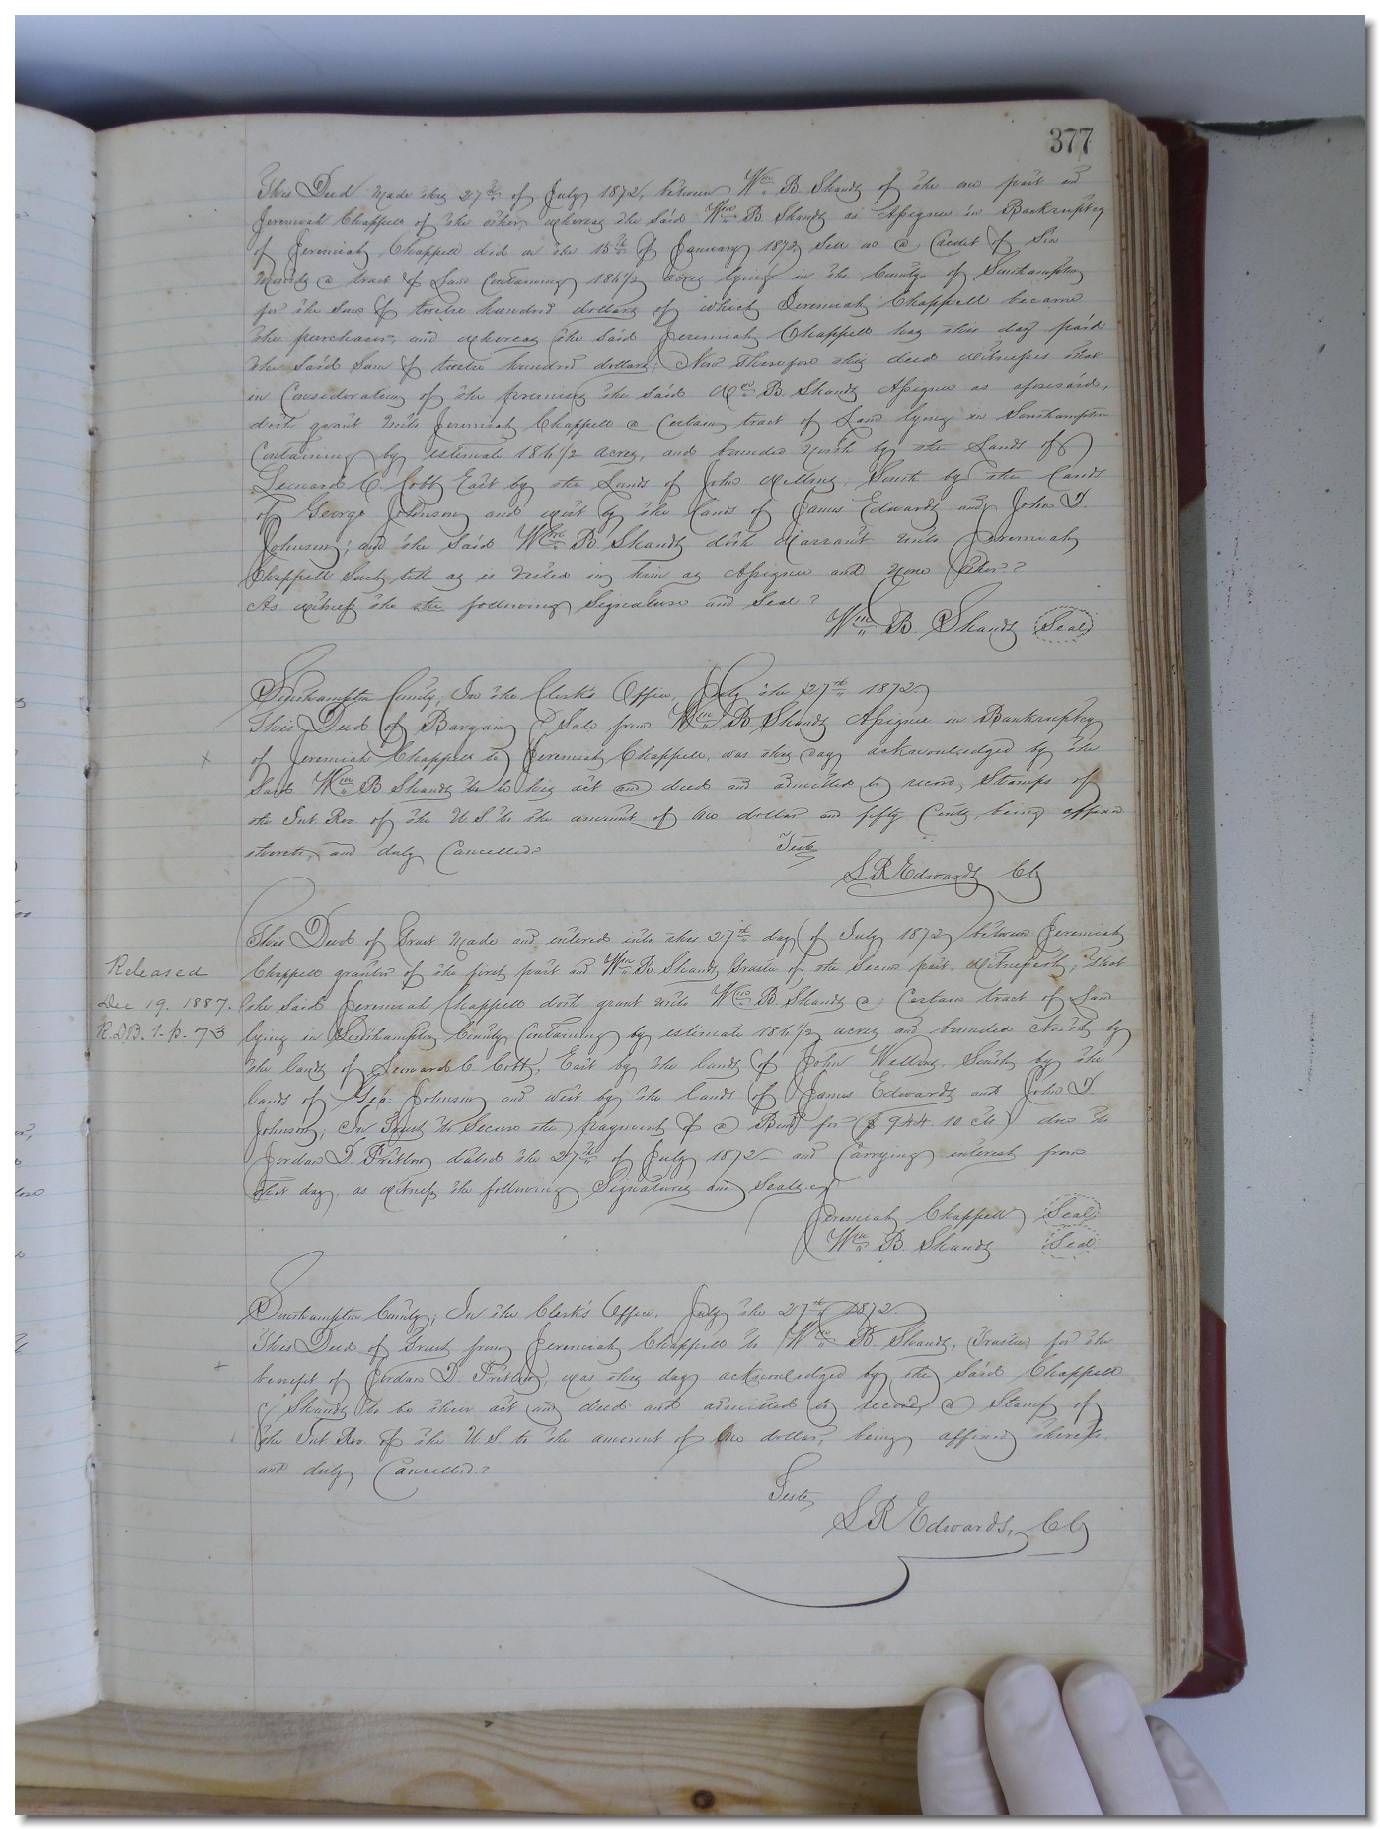 377
This Deed made this 27th of July 1872, between Wm B Shands of the one part and
Jeremiah Chappell of the other, whereas the said Wm B Shands as Assignee in Bankruptcy
of Jeremiah Chappell did on the 15th of January 1872 sell on a credit of Six
months a tract of Land Containing 186 1/2 acres lying in the County of Southampton
for the sum of twelve hundred dollars of which Jeremiah Chappell became
the purchaser, and whereas the said Jeremiah Chappell has this day paid
the said sum of twelve hundred dollars; Now Therefore this deed witnesses that
in Consideration of the premises the said Wm B. Shands Assignee as aforesaid,
doth grant unto Jeremiah Chappell a Certain tract of Land lying in Southampton
Containing by estimate 186 1/2 acres, and bounded North by the Lands of
C. Cobb East by the Lands of John South by the Lands
of George Johnson and west by the lands of James Edwards and John D.
Johnson; and the said Wm B. Shands doth warrant unto Jeremiah
Chappell such title as is vested in him as Assignee and none other.
As witness the the following Signature and Seal.
Wm B. Shands Seal
Southampton County, In the Clerk's Office, July the 27th 1872
This Deed of Bargain & Sale from Wm B Shands Assignee in Bankruptcy
x of Jeremiah Chappell to Jeremiah Chappell, was this day acknowledged by the
said Wm B Shands to be his act and deed and admitted to record, Stamps of
the Int. Rev of the U.S to the amount of one dollar and fifty Cents being affixed
thereto, and duly Cancelled.
Teste
L R Edwards Clk
This Deed of Trust made and entered into this 27th day of July 1872 between Jeremiah
Released
Chappell grantor of the first part and Wm B. Shands Trustee of the second part, witnesseth, that
Dec 19. 1887.
the said Jeremiah Chappell doth grant unto Wm B. Shands a Certain tract of Land
R.D.B. 1. p. 73
lying in Southampton County Containing by estimate 186 1/2 acres and bounded North by
the lands of C Cobb, East by the lands of John South by the
lands of Geo. Johnson and west by the lands of James Edwards and John D.
Johnson, In Trust to Secure the payment of a Bond for ($944.10 cts) due to
Jordan D. Pretlow dated the 27th of July 1872 and Carrying interest from
that day, as witness the following Signatures and Seals
Jeremiah Chappell Seal
Wm B. Shands Seal
Southampton County; In the Clerk's Office, July the 27th 1872
This Deed of Trust from Jeremiah Chappell to Wm B. Shands, Trustee for the
+ benefit of Jordan D. Pretlow, was this day acknowledged by the said Chappell
& Shands to be their act and deed and admitted to record, a Stamp of
the Int. Rev. of the U.S to the amount of one dollar, being affixed thereto
and duly Cancelled.
Teste
L R Edwards, Clk